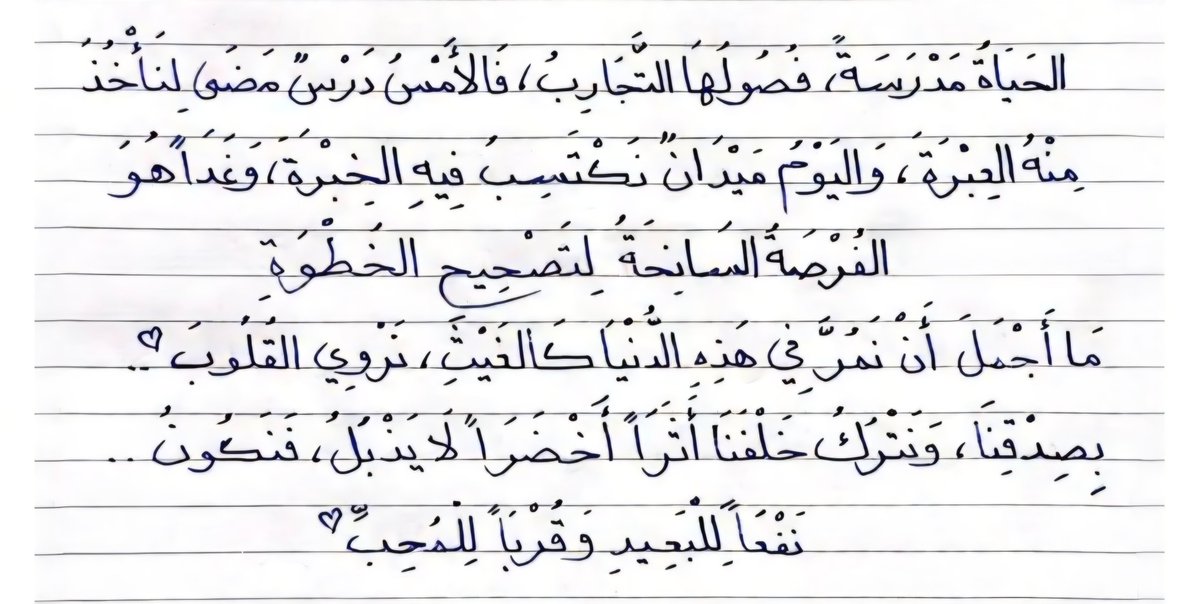 الحَيَاةُ مَدْرَسَةٌ، فُصُولُهَا التَّجَارِبُ، فَالأَمْسُ دَرْسٌ مَضَى لِنَأْخُذَ
مِنْهُ العِبْرَةَ، وَاليَوْمُ مَيْدَانٌ نَكْتَسِبُ فِيهِ الخِبْرَةَ، وَغَدَاً هُوَ
الفُرْصَةُ السَانِحَةُ لِتَصْحِيحِ الخَطْوَةِ
مَا أَجْمَلَ أَنْ نَمُرَّ فِي هَذِهِ الدُّنْيَا كَالغَيْثِ، نَرْوِي القُلُوبَ ♡..
بِصِدْقِنَا، وَنَتْرُكُ خَلْفَنَا أَثَرَاً أَخْضَرَاً لَا يَذْبُلُ، فَنَكُونُ ..
نَفْعَاً لِلْبَعِيدِ وَقُرْبَاً لِلْمُحِبِّ ♡